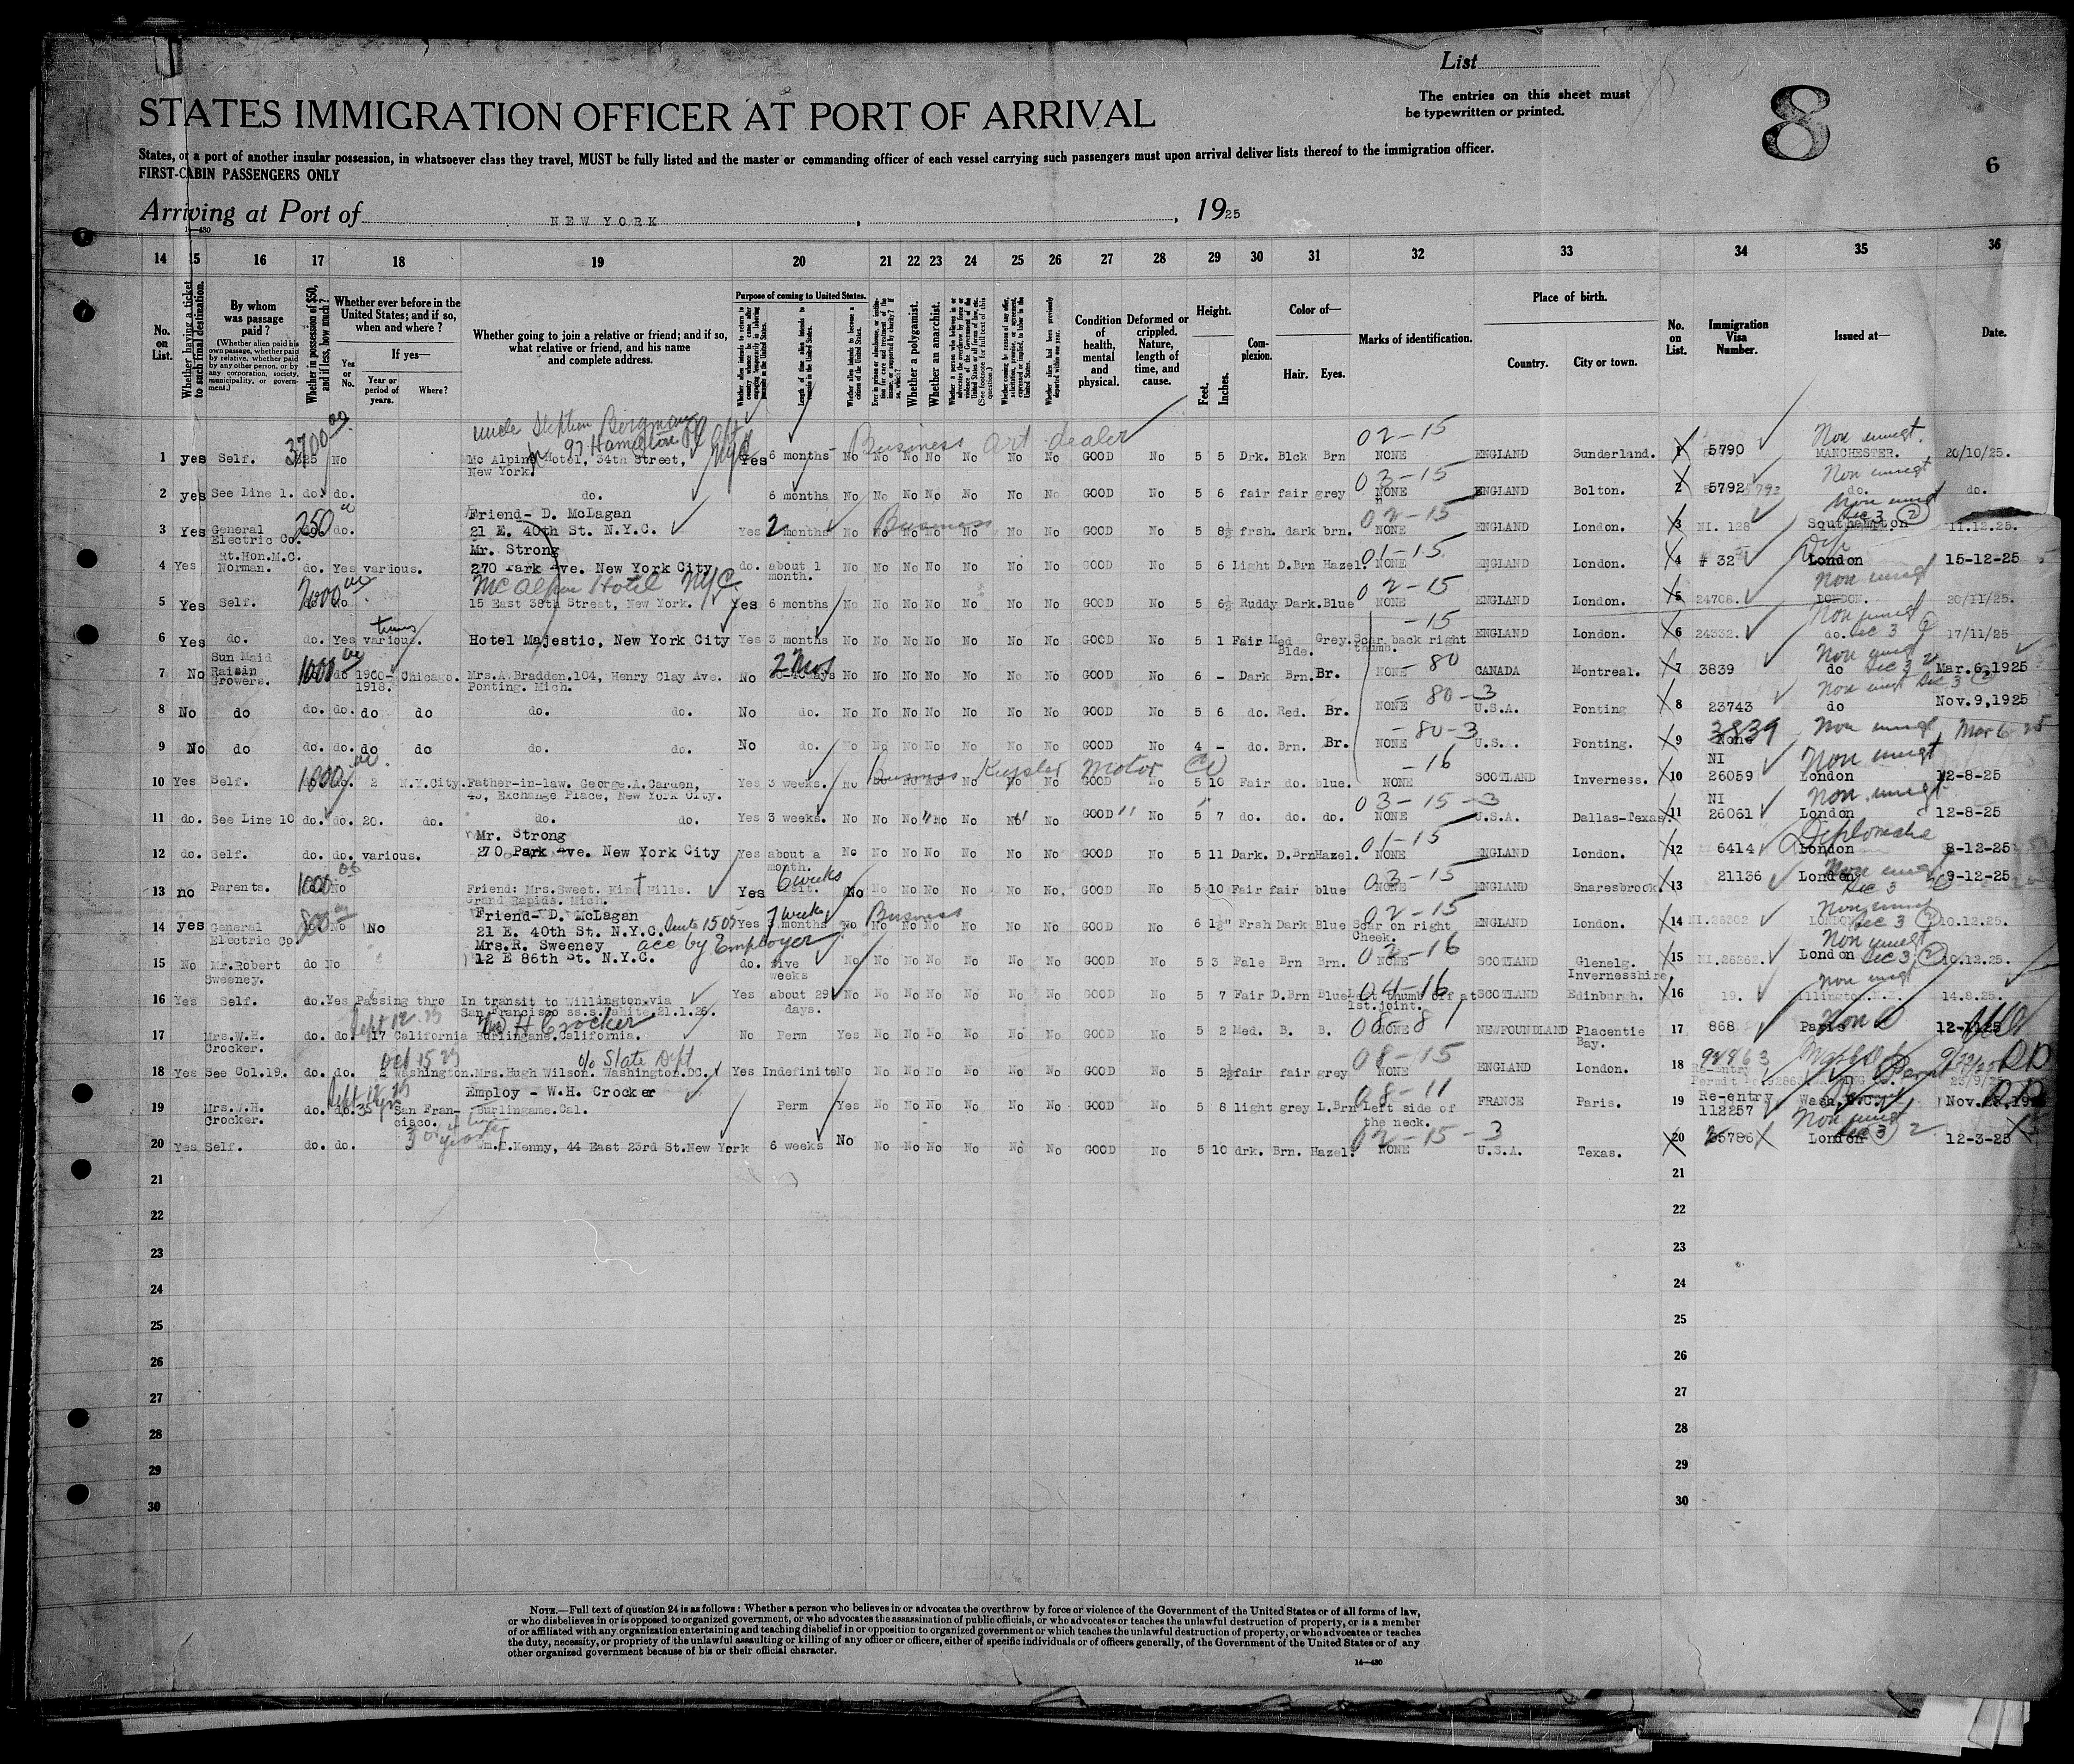 List
The entries on this sheet must
be typewritten or printed.
8
6
STATES IMMIGRATION OFFICER AT PORT OF ARRIVAL
States, or a port of another insular possession, in whatsoever class they travel, MUST be fully listed and the master or commanding officer of each vessel carrying such passengers must upon arrival deliver lists thereof to the immigration officer.
FIRST-CABIN PASSENGERS ONLY
Arriving at Port of NEW YORK , , 1925
14—430
14 15 16 17 18 19 20 21 22 23 24 25 26 27 28 29 30 31 32 33 34 35 36
No. on List.
Whether having a ticket to such final destination.
By whom was passage paid?
(Whether alien paid his own passage, whether paid by relative, whether paid by any other person, or by any corporation, society, municipality, or government.)
Whether in possession of $50, and if less, how much?
Whether ever before in the United States; and if so, when and where?
Yes or No.
If yes—
Year or period of years.
Where?
Whether going to join a relative or friend; and if so, what relative or friend, and his name and complete address.
Purpose of coming to United States.
Length of time alien intends to remain in the United States.
Whether alien intends to become a citizen of the United States.
Whether a polygamist.
Whether an anarchist.
Condition of health, mental and physical.
Deformed or crippled. Nature, length of time, and cause.
Height.
Feet.
Inches.
Complexion.
Color of—
Hair.
Eyes.
Marks of identification.
Place of birth.
Country.
City or town.
No. on List.
Immigration Visa Number.
Issued at—
Date.
uncle Stephen Bergman
97 Hamilton Pl
3700 Business art dealer 02-15 Non immgt.
1 yes Self. No Mc Alpine Hotel, 34th Street, Yes 6 months No No No No No No No GOOD No 5 5 Drk. Blck Brn NONE ENGLAND Sunderland. 1 5790 MANCHESTER. 20/10/25.
New York.
03-15 Non immgt
2 yes See Line 1. do. do. do. 6 months No No No No No No No GOOD No 5 6 fair fair grey NONE ENGLAND Bolton. 2 5792 do. do.
Friend- D. McLagan 02-15 Non immgt
250 Business Sec 3 (2)
3 Yes General do. 21 E. 40th St. N.Y.C. Yes 2 months No No No No No No No GOOD No 5 8½ frsh. dark brn. NONE ENGLAND London. 3 NI. 128 Southampton 11.12.25.
Electric Co.
Rt.Hon.M.C. Mr. Strong 01-15
4 Yes Norman. do. Yes various. 270 Park Ave. New York City do. about 1 No No No No No No No GOOD No 5 6 Light D.Brn Hazel. NONE ENGLAND London. 4 # 32 London 15-12-25
month.
McAlpin Hotel NYC 02-15 Non immgt
5 Yes Self. No 15 East 38th Street, New York. Yes 6 months No No No No No No No GOOD No 5 6½ Ruddy Dark. Blue NONE ENGLAND London. 5 24708. LONDON. 20/11/25.
times -15 Non immgt
6 Yes do. do. Yes various. Hotel Majestic, New York City Yes 3 months No No No No No No No GOOD No 5 1 Fair Med Grey. Scar back right ENGLAND London. 6 24332. do. Sec 3 (2) 17/11/25
Blde. thumb.
Sun Maid 1000 2 mos - 80 Non immgt
7 No Raisin do 1900- Chicago. Mrs.A.Bradden.104, Henry Clay Ave. No No No No No No No No GOOD No 6 - Dark Brn. Br. NONE CANADA Montreal. 7 3839 do Sec 3 2 Mar.6,1925
Growers. 1918. Ponting. Mich.
- 80-3 Non immgt Sec 3 (2)
8 No do do. do. do do do. do. No do. No No No No No No No GOOD No 5 6 do. Red. Br. NONE U.S.A. Ponting 8 23743 do Nov.9,1925
- 80-3 3839 Non immgt Mar 6 25
9 No do do. do. do do do. do. No do. No No No No No No No GOOD No 4 - do. Brn. Br. NONE U.S.A. Ponting. 9 None
1000 Business Kuysler Motor Co -16 NI Non immgt
10 Yes Self. do. 2 N.Y.City. Father-in-law. George.A.Carden, Yes 3 weeks. No No No No No No No GOOD No 5 10 Fair do. blue. NONE SCOTLAND Inverness. 10 26059 London 12-8-25
43, Exchange Place, New York City.
03-15-3 NI Non immgt
11 do. See Line 10 do. do. 20. do. do. do. Yes 3 weeks. No No No No No No No GOOD No 5 7 do. do. do. NONE U.S.A. Dallas-Texas. 11 26061 London 12-8-25
Mr. Strong 01-15 Diplomatic
12 do. Self. do. do. various. 270 Park Ave. New York City Yes about a No No No No No No No GOOD No 5 11 Dark. D.Brn Hazel. NONE ENGLAND London. 12 6414 London 8-12-25
month.
1000 6 weeks 03-15 Non immgt
13 no Parents. No Friend: Mrs.Sweet. Kind Hills. Yes Visit. No No No No No No No GOOD No 5 10 Fair fair blue NONE ENGLAND Snaresbrook. 13 21136 London Sec 3 9-12-25
Grand Rapids. Mich.
Friend- D. McLagan 7 weeks Business 02-15 Non immgt
14 yes General 800 No No 21 E. 40th St. N.Y.C. Suite 1505 Yes 3 months No No No No No No No GOOD No 6 1½" Frsh Dark Blue Scar on right ENGLAND London. 14 NI.26302 LONDON Sec 3 (2) 10.12.25.
Electric Co. Cheek.
Mrs.R. Sweeney acc by Employer 02-16 Non immgt
15 No Mr.Robert do No 12 E 86th St. N.Y.C. do. five No No No No No No No GOOD No 5 3 Pale Brn Brn. NONE SCOTLAND Glenelg. 15 NI.26262. London Sec 3 (2) 10.12.25.
Sweeney. weeks Invernesshire
04-16 Non immgt
16 Yes Self. do. Yes Passing thro In transit to Willington.via Yes about 29 No No No No No No No GOOD No 5 7 Fair D.Brn Blue Left thumb off at SCOTLAND Edinburgh. 16 19. Illington.N.Z. 14.8.25.
San Francisco ss.s.Tahite,21.1.26. days. 1st.joint.
Sept 12 25 Wm H Crocker
17 Mrs.W.H. do. do. 17 California Burlingame.California. No Perm Yes No No No No No No GOOD No 5 2 Med. B. B. NONE NEWFOUNDLAND Placentie 17 868 Paris 12-1-25
Crocker. Bay.
Oct 15 25 c/o State Dept 08-15 92863 9/23/25 RP
18 Yes See Col.19. do. do. 2 Washington. Mrs.Hugh Wilson. Washington.DC. Yes Indefinite No No No No No No No GOOD No 5 2½ fair fair grey NONE ENGLAND London. 18 Re-Entry Permit
Permit 92863 23/9/25
Sept 12 25 Employ - W.H. Crocker 08-11 RP
19 Mrs.W.H. do. do. 35 yrs San Fran- Burlingame.Cal. Perm Yes No No No No No No GOOD No 5 8 light grey L.Brn Left side of FRANCE Paris. 19 Re-entry Wash. D.C.
Crocker. cisco. the neck. 112257
02-15-3 Non immgt
20 Yes Self. do. do. Wm.F.Kenny, 44 East 23rd St.New York 6 weeks No No No No No No No GOOD No 5 10 drk. Brn. Hazel. NONE U.S.A. Texas. 20 London Sec 3 2 12-3-25
21 21
22 22
23 23
24 24
25 25
26 26
27 27
28 28
29 29
30 30
NOTE.—Full text of question 24 is as follows: Whether a person who believes in or advocates the overthrow by force or violence of the Government of the United States or of all forms of law,
or who disbelieves in or is opposed to organized government, or who advocates the assassination of public officials, or who advocates or teaches the unlawful destruction of property, or is a member
of or affiliated with any organization entertaining and teaching disbelief in or opposition to organized government or which teaches the unlawful destruction of property, or who advocates or teaches
the duty, necessity, or propriety of the unlawful assaulting or killing of any officer or officers, either of specific individuals or of officers generally, of the Government of the United States or of any
other organized government because of his or their official character.
14—430